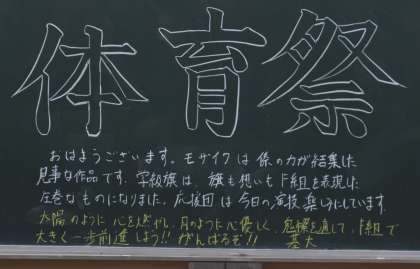 体育祭
おはようございます。モザイクは係の力が結集した
見事な作品です。学級旗は、旗も想いもF組を表現した
圧巻なものになりました。応援団は今日の演技、楽しみにしています。
太陽のように心を燃やし、月のように心優しく、
を通して、F組で
大きく一歩前進しよう!! がんばるぞ!!